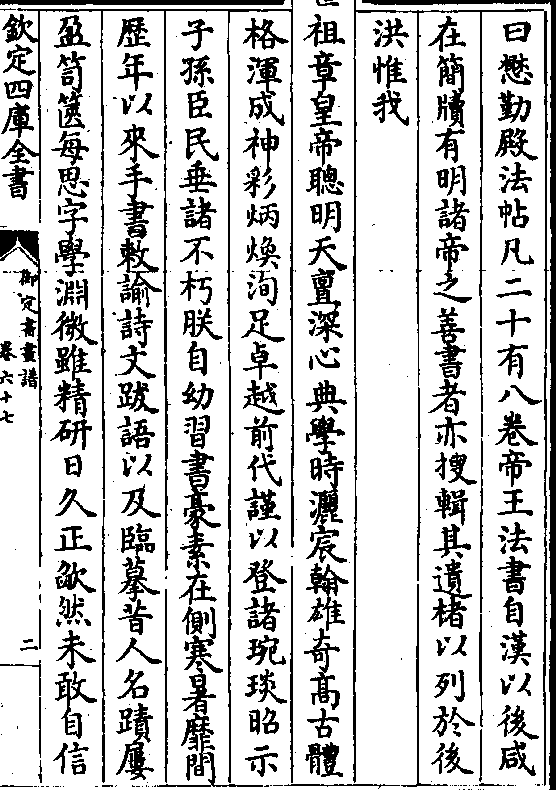 曰懋勤殿法帖凡二十有八卷帝王法書自漢以後咸
在簡牘有明諸帝之善書者亦搜輯其遺楮以列於後
洪惟我
祖章皇帝聰明天亶深心典學時灑宸翰雄奇髙古體
格渾成神彩炳煥洵足卓越前代謹以登諸琬琰昭示
子孫臣民垂諸不朽朕自幼習書豪素在側寒暑靡間
歴年以來手書敕諭詩文跋語以及臨摹昔人名蹟屢
盈笥篋每思字學淵微雖精研日久正歉然未敢自信
欽定四庫全書
御定書畫譜
卷六十七
二